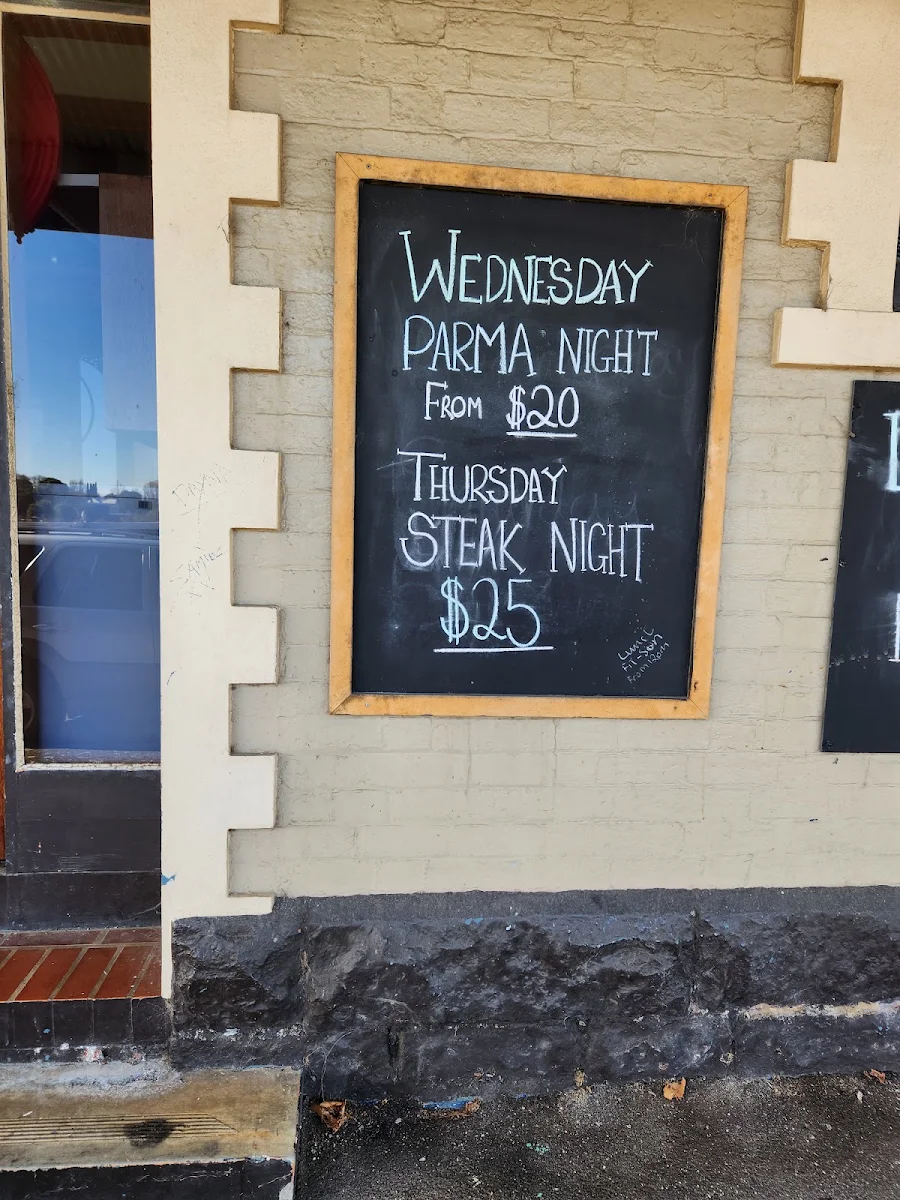 WEDNESDAY
PARMA NIGHT
FROM $20
THURSDAY
STEAK NIGHT
$25
Fri-Sun
From 12pm